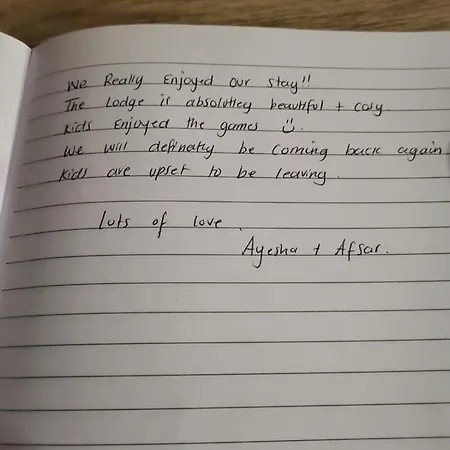 We Really Enjoyed our stay!!
The Lodge is absolutley beautiful + cosy.
Kids Enjoyed the games ☺.
We will definatly be coming back again
Kids are upset to be leaving.
lots of love.
Ayesha + Afsar.